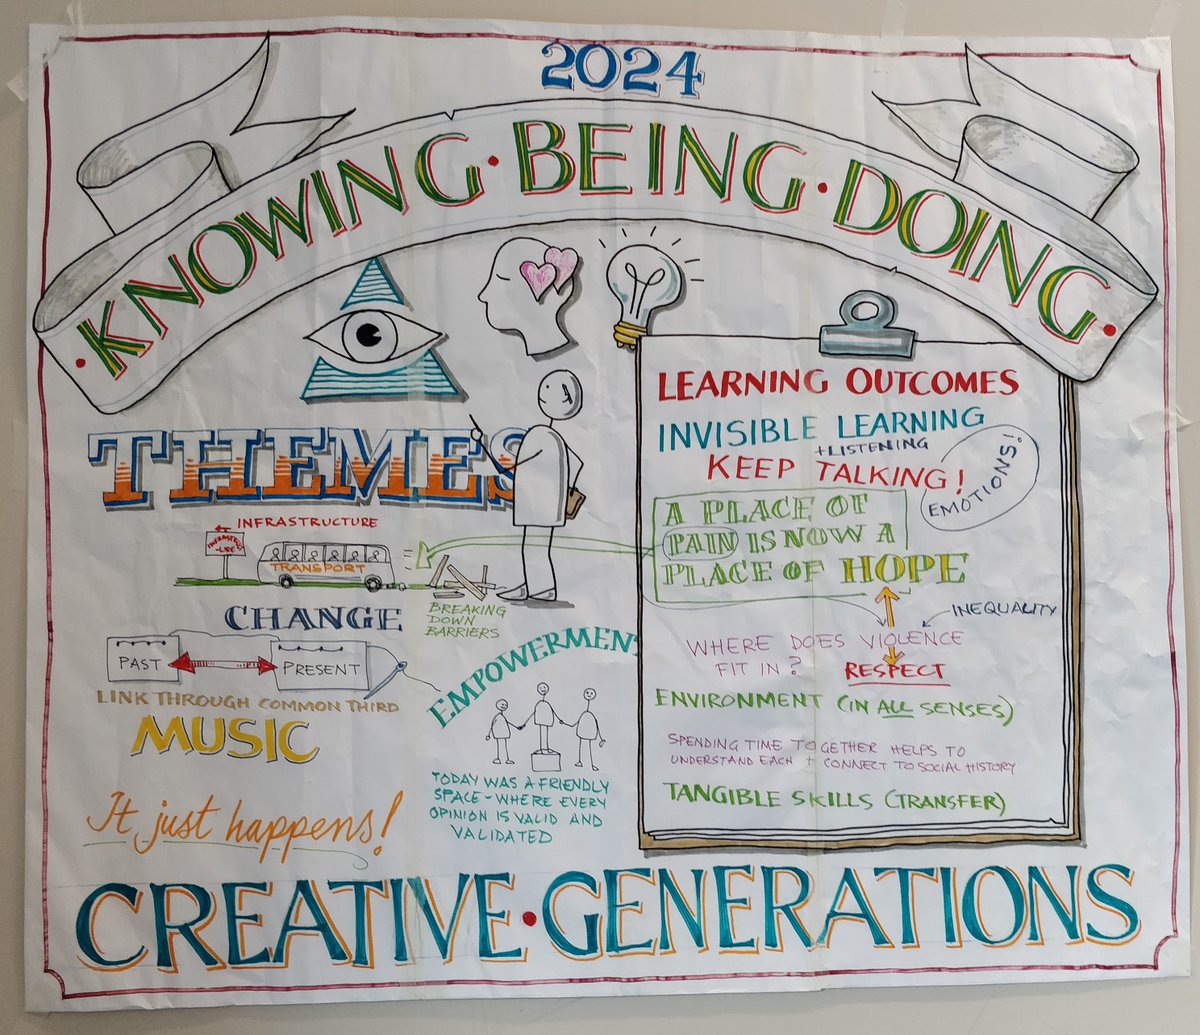 2024
·KNOWING·BEING·DOING·
THEMES
INFRASTRUCTURE
INFRASTRUCT
-URE
TRANSPORT
BREAKING
DOWN
BARRIERS
CHANGE
PAST
PRESENT
LINK THROUGH COMMON THIRD
MUSIC
It just happens!
EMPOWERMENT
TODAY WAS A FRIENDLY
SPACE - WHERE EVERY
OPINION IS VALID AND
VALIDATED
LEARNING OUTCOMES
INVISIBLE LEARNING
+LISTENING
KEEP TALKING!
EMOTIONS!
A PLACE OF
PAIN IS NOW A
PLACE OF HOPE
INEQUALITY
WHERE DOES VIOLENCE
FIT IN?
RESPECT
ENVIRONMENT (IN ALL SENSES)
SPENDING TIME TOGETHER HELPS TO
UNDERSTAND EACH + CONNECT TO SOCIAL HISTORY
TANGIBLE SKILLS (TRANSFER)
CREATIVE·GENERATIONS